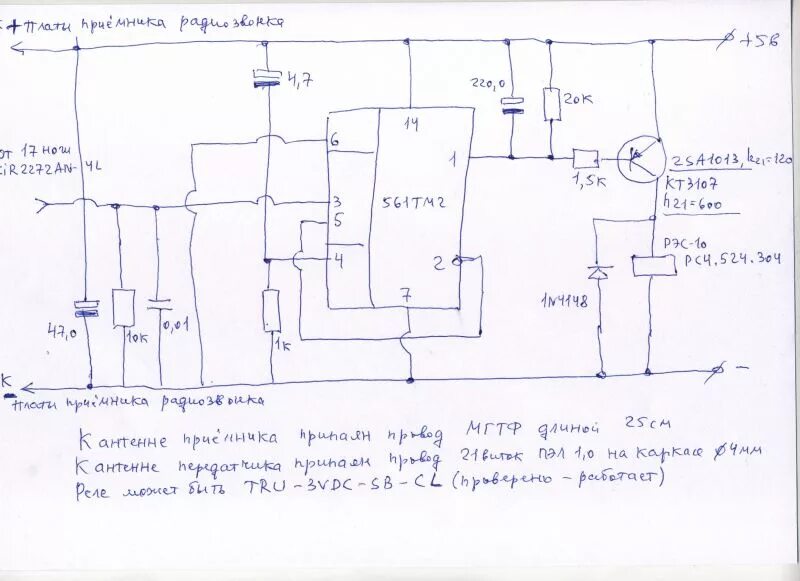 + Платы приёмника радиозвонка
+5В
4,7
220,0
20к
14
6
1
от 17 ножки
2272AN-4L
1,5к
2SA1013, h21=120
КТ3107
h21=600
3
561ТМ2
5
4
2
7
РЭС-10
РС4.524.304
1N4148
47,0
10к
0,01
1к
К
-
Платы приёмника радиозвонка
К антенне приёмника припаян провод МГТФ длиной 25см
К антенне передатчика припаян провод 21 виток ПЭЛ 1,0 на каркасе ф4мм
Реле может быть TRU-3VDC-SB-CL (проверено - работает)